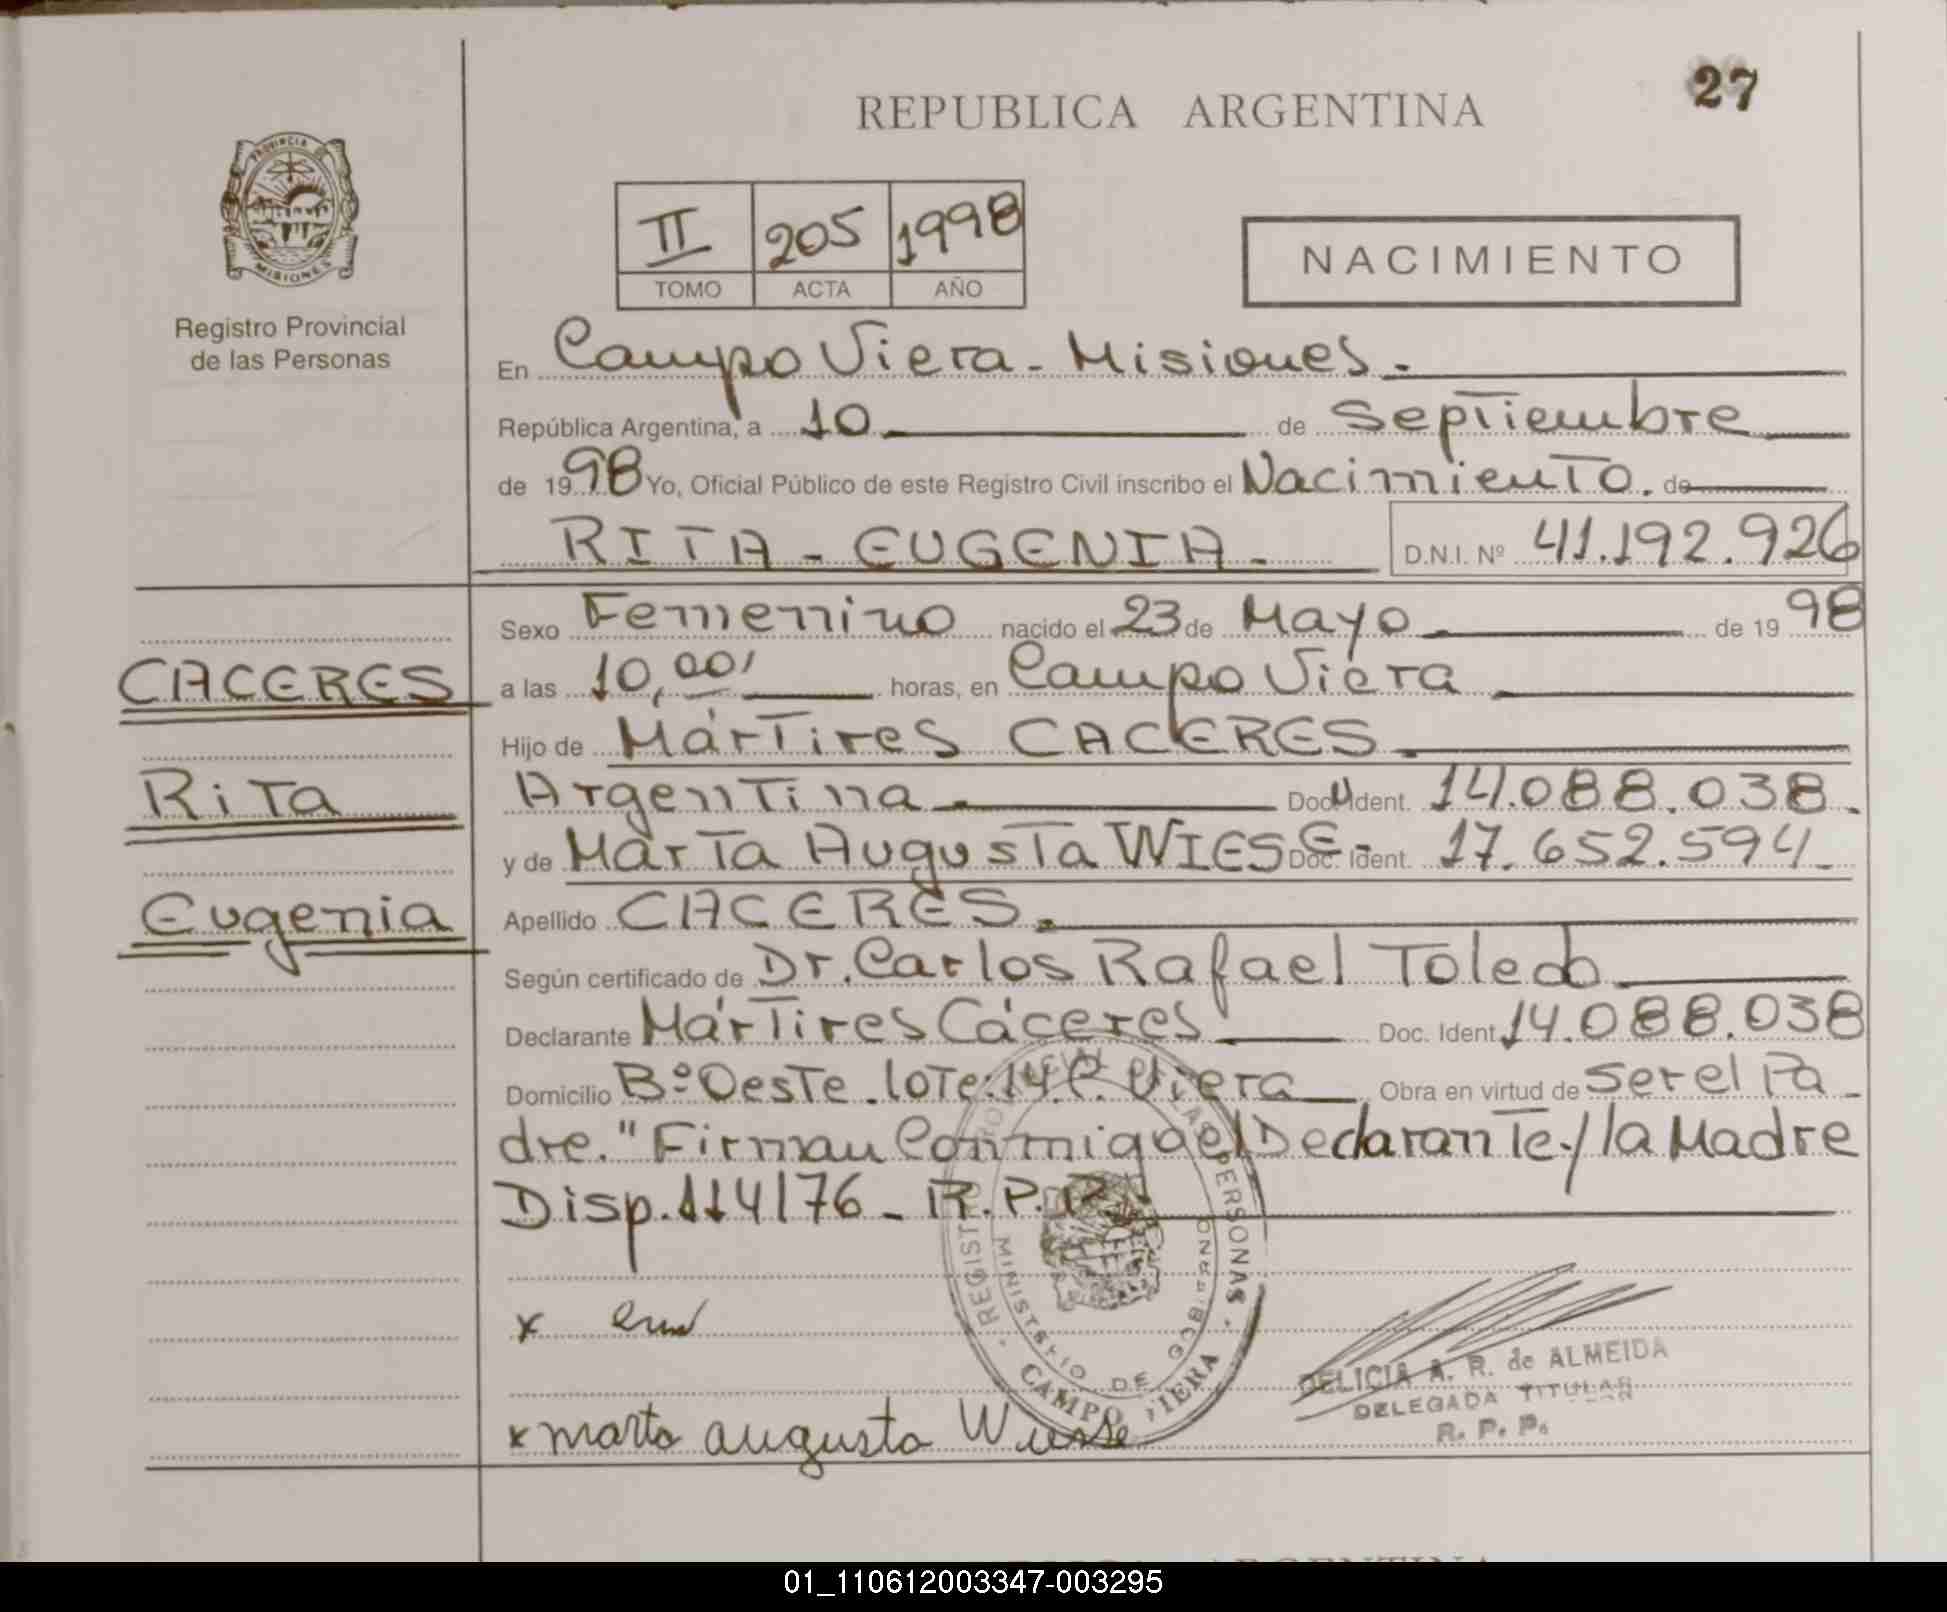 27
REPUBLICA ARGENTINA
PROVINCIA DE
MISIONES
Registro Provincial
de las Personas
II 205 1998
TOMO ACTA AÑO
NACIMIENTO
En Campo Viera - Misiones.
República Argentina, a 10 de Septiembre
de 1998 Yo, Oficial Público de este Registro Civil inscribo el Nacimiento. de
RITA - EUGENIA - D.N.I. Nº 41.192.926
Sexo Femenino nacido el 23 de Mayo de 1998
CACERES
a las 10,00' horas, en Campo Viera
Hijo de Mártires CACERES.
Rita
Argentina. Doc. Ident. 14.088.038.
y de Marta Augusta WIESE - Doc. Ident. 17.652.594
Eugenia
Apellido CACERES.
Según certificado de Dr. Carlos Rafael Toledo
Declarante Mártires Cáceres Doc. Ident. 14.088.038
Domicilio Bº Oeste. lote: 14 C. Viera Obra en virtud de ser el Pa
dre." Firman Conmigo el Declarante y/la Madre
Disp. 114/76 - R.P.P.
REGISTRO PROVINCIAL DE LAS PERSONAS
MINISTERIO DE GOBIERNO
CAMPO VIERA
x
DELICIA A. R. de ALMEIDA
DELEGADA TITULAR
R. P. P.
x marta augusta Wiesse
01_110612003347-003295